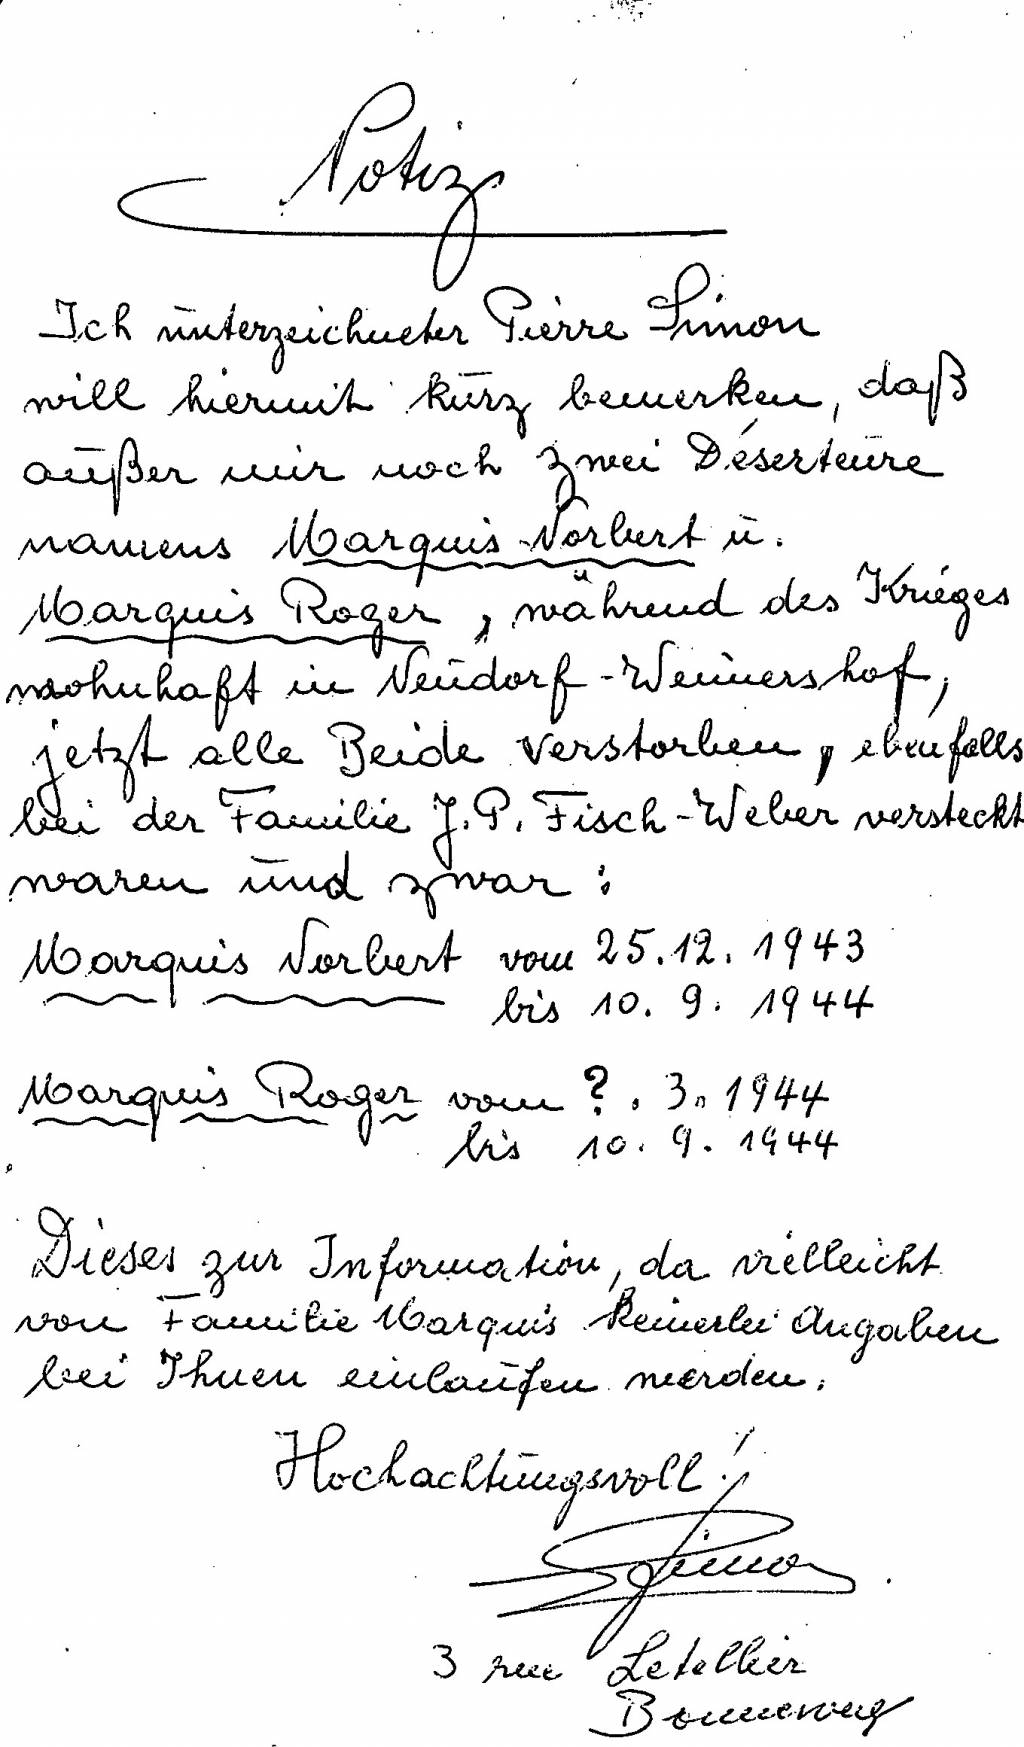 Notiz
Ich unterzeichneter Pierre Simon
will hiermit kurz bemerken, daß
außer mir noch zwei Déserteure
namens Marquis Norbert u.
Marquis Roger, während des Krieges
wohnhaft in Neudorf-Weimershof,
jetzt alle Beide verstorben, ebenfalls
bei der Familie J.P. Fisch-Weber versteckt
waren und zwar:
Marquis Norbert vom 25.12.1943
bis 10.9.1944
Marquis Roger vom ?.3.1944
bis 10.9.1944
Dieses zur Information, da vielleicht
von Familie Marquis keinerlei Angaben
bei Ihnen einlaufen werden.
Hochachtungsvoll!
PSimon
3 rue Letellier
Bonneweg